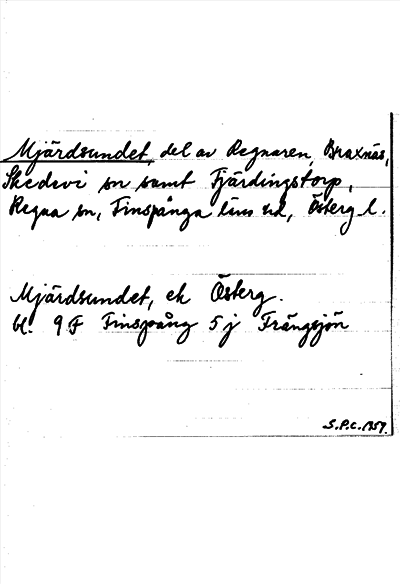 Mjärdsundet, del av Regnaren, Braxnäs,
Skedevi sn samt Fjärdingstorp,
Regna sn, Finspånga läns hd, Österg l.
Mjärdsundet, ek Österg.
bl. 9 F Finspång 5 j Frängsjön
S.P.C. 1957.